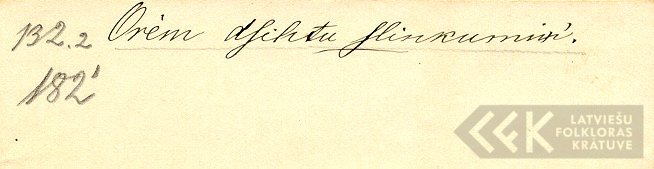 132.2 Orêm dſihtu ſlinkumiņ'.
182'
LATVIEŠU
FOLKLORAS
KRĀTUVE